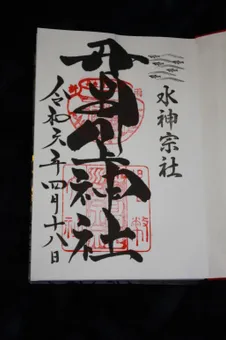 水神宗社
丹生川上神社
令和六年四月十八日